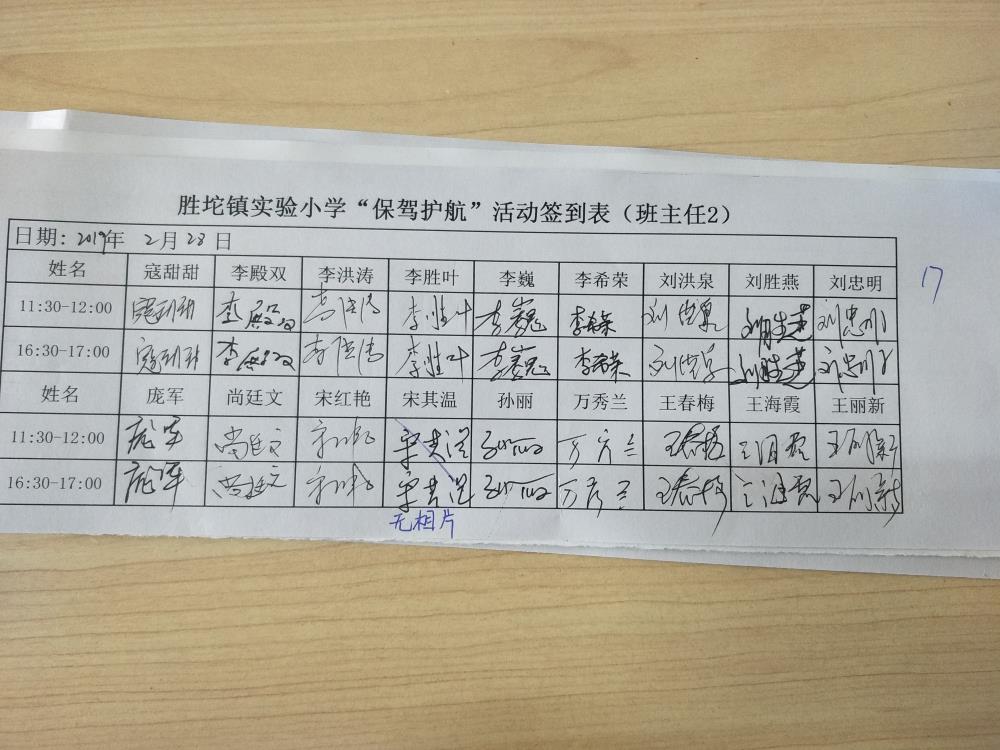 胜坨镇实验小学“保驾护航”活动签到表（班主任2）
日期: 2019年 2月28日
姓名 寇甜甜 李殿双 李洪涛 李胜叶 李巍 李希荣 刘洪泉 刘胜燕 刘忠明
17
11:30-12:00 寇甜甜 李殿双 李洪涛 李胜叶 李巍 李希荣 刘洪泉 刘胜燕 刘忠明
16:30-17:00 寇甜甜 李殿双 李洪涛 李胜叶 李巍 李希荣 刘洪泉 刘胜燕 刘忠明
姓名 庞军 尚廷文 宋红艳 宋其温 孙丽 万秀兰 王春梅 王海霞 王丽新
11:30-12:00 庞军 尚廷文 宋红艳 宋其温 孙丽 万秀兰 王春梅 王海霞 王丽新
16:30-17:00 庞军 尚廷文 宋红艳 宋其温 孙丽 万秀兰 王春梅 王海霞 王丽新
无相片